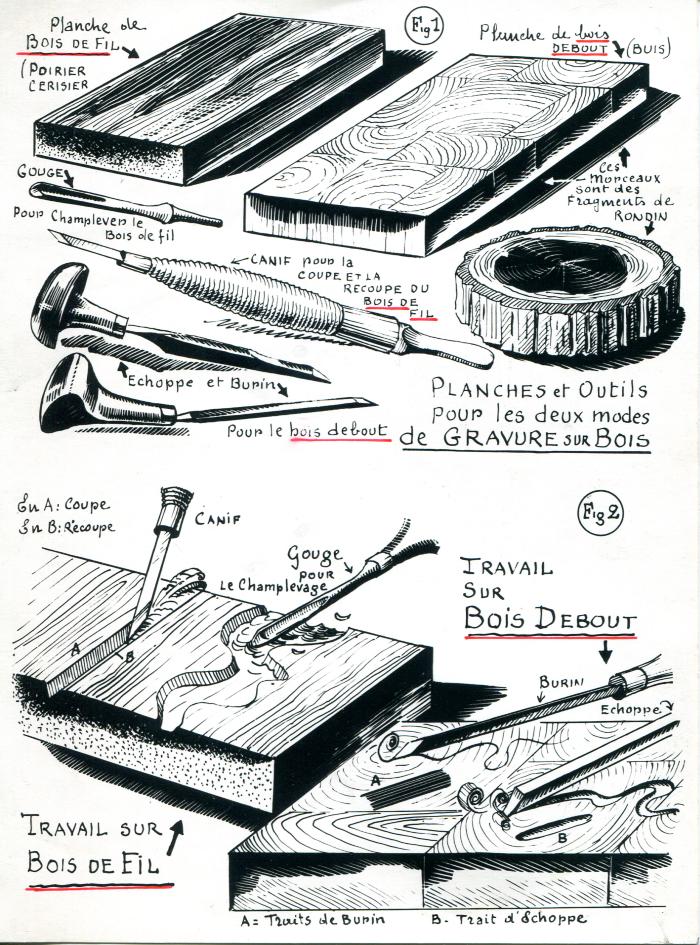 Planche de
BOIS DE FIL
(POIRIER
CERISIER
Fig 1
Planche de bois
DEBOUT (BUIS)
GOUGE
Pour Champlever le
Bois de fil
Ces
Morceaux
sont des
Fragments de
RONDIN
CANIF pour la
COUPE ET LA
RECOUPE DU
BOIS DE
FIL
Echoppe et Burin
Pour le bois debout
PLANCHES et OUTILS
pour les deux modes
de GRAVURE SUR BOIS
En A: Coupe
En B: Recoupe
CANIF
Fig 2
Gouge
POUR
Le Champlevage
TRAVAIL
SUR
BOIS DEBOUT
A
B
BURIN
Echoppe
A
B
TRAVAIL SUR
BOIS DE FIL
A = Traits de Burin B - Trait d'Echoppe